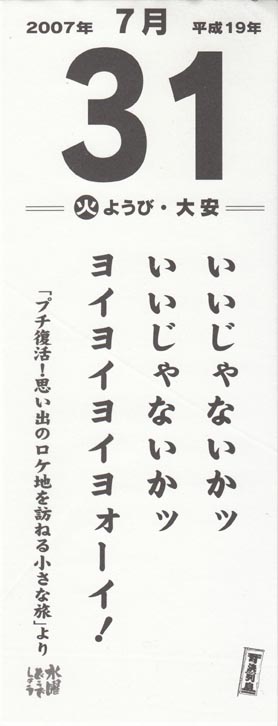 2007年 7月 平成19年
31
火ようび・大安
いいじゃないかッ
いいじゃないかッ
ヨイヨイヨイヨォーイ!
「プチ復活!思い出のロケ地を訪ねる小さな旅」より
水曜
どうで
しょう